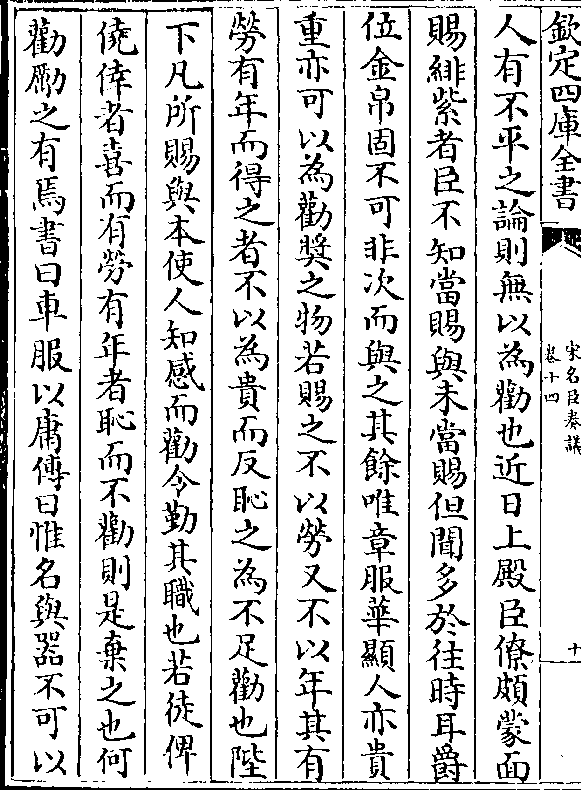 欽定四庫全書
宋名臣奏議
卷十四
十
人有不平之論則無以為勸也近日上殿臣僚頗蒙面
賜緋紫者臣不知當賜與未當賜但聞多於往時耳爵
位金帛固不可非次而與之其餘唯章服華顯人亦貴
重亦可以為勸奬之物若賜之不以勞又不以年其有
勞有年而得之者不以為貴而反恥之為不足勸也陛
下凡所賜與本使人知感而勸令勤其職也若徒俾
僥倖者喜而有勞有年者恥而不勸則是棄之也何
勸勵之有焉書曰車服以庸傳曰惟名與器不可以